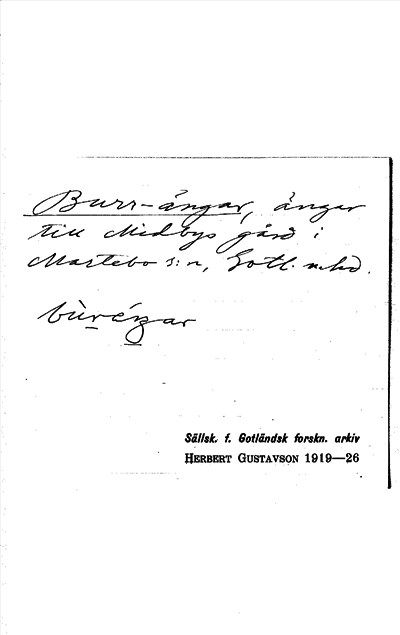 Burr-ängar, ängar
till Medbys gård i
Martebo s:n, Gotl. n. hd.
bùréŋar
Sällsk. f. Gotländsk forskn. arkiv
HERBERT GUSTAVSON 1919—26